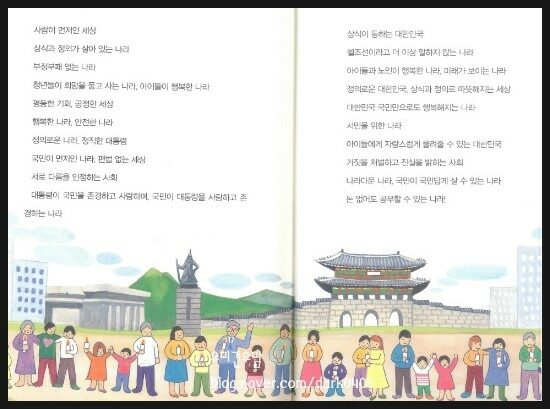 사람이 먼저인 세상
상식과 정의가 살아 있는 나라
부정부패 없는 나라
청년들이 희망을 품고 사는 나라, 아이들이 행복한 나라
평등한 기회, 공정한 세상
행복한 나라, 안전한 나라
정의로운 나라, 정직한 대통령
국민이 먼저인 나라, 편법 없는 세상
서로 다름을 인정하는 사회
대통령이 국민을 존경하고 사랑하며, 국민이 대통령을 사랑하고 존
경하는 나라
상식이 통하는 대한민국
헬조선이라고 더 이상 말하지 않는 나라
아이들과 노인이 행복한 나라, 미래가 보이는 나라
정의로운 대한민국, 상식과 정의로 따뜻해지는 세상
대한민국 국민만으로도 행복해지는 나라
서민을 위한 나라
아이들에게 자랑스럽게 물려줄 수 있는 대한민국
거짓을 처벌하고 진실을 밝히는 사회
나라다운 나라, 국민이 국민답게 살 수 있는 나라
돈 없어도 공부할 수 있는 나라!